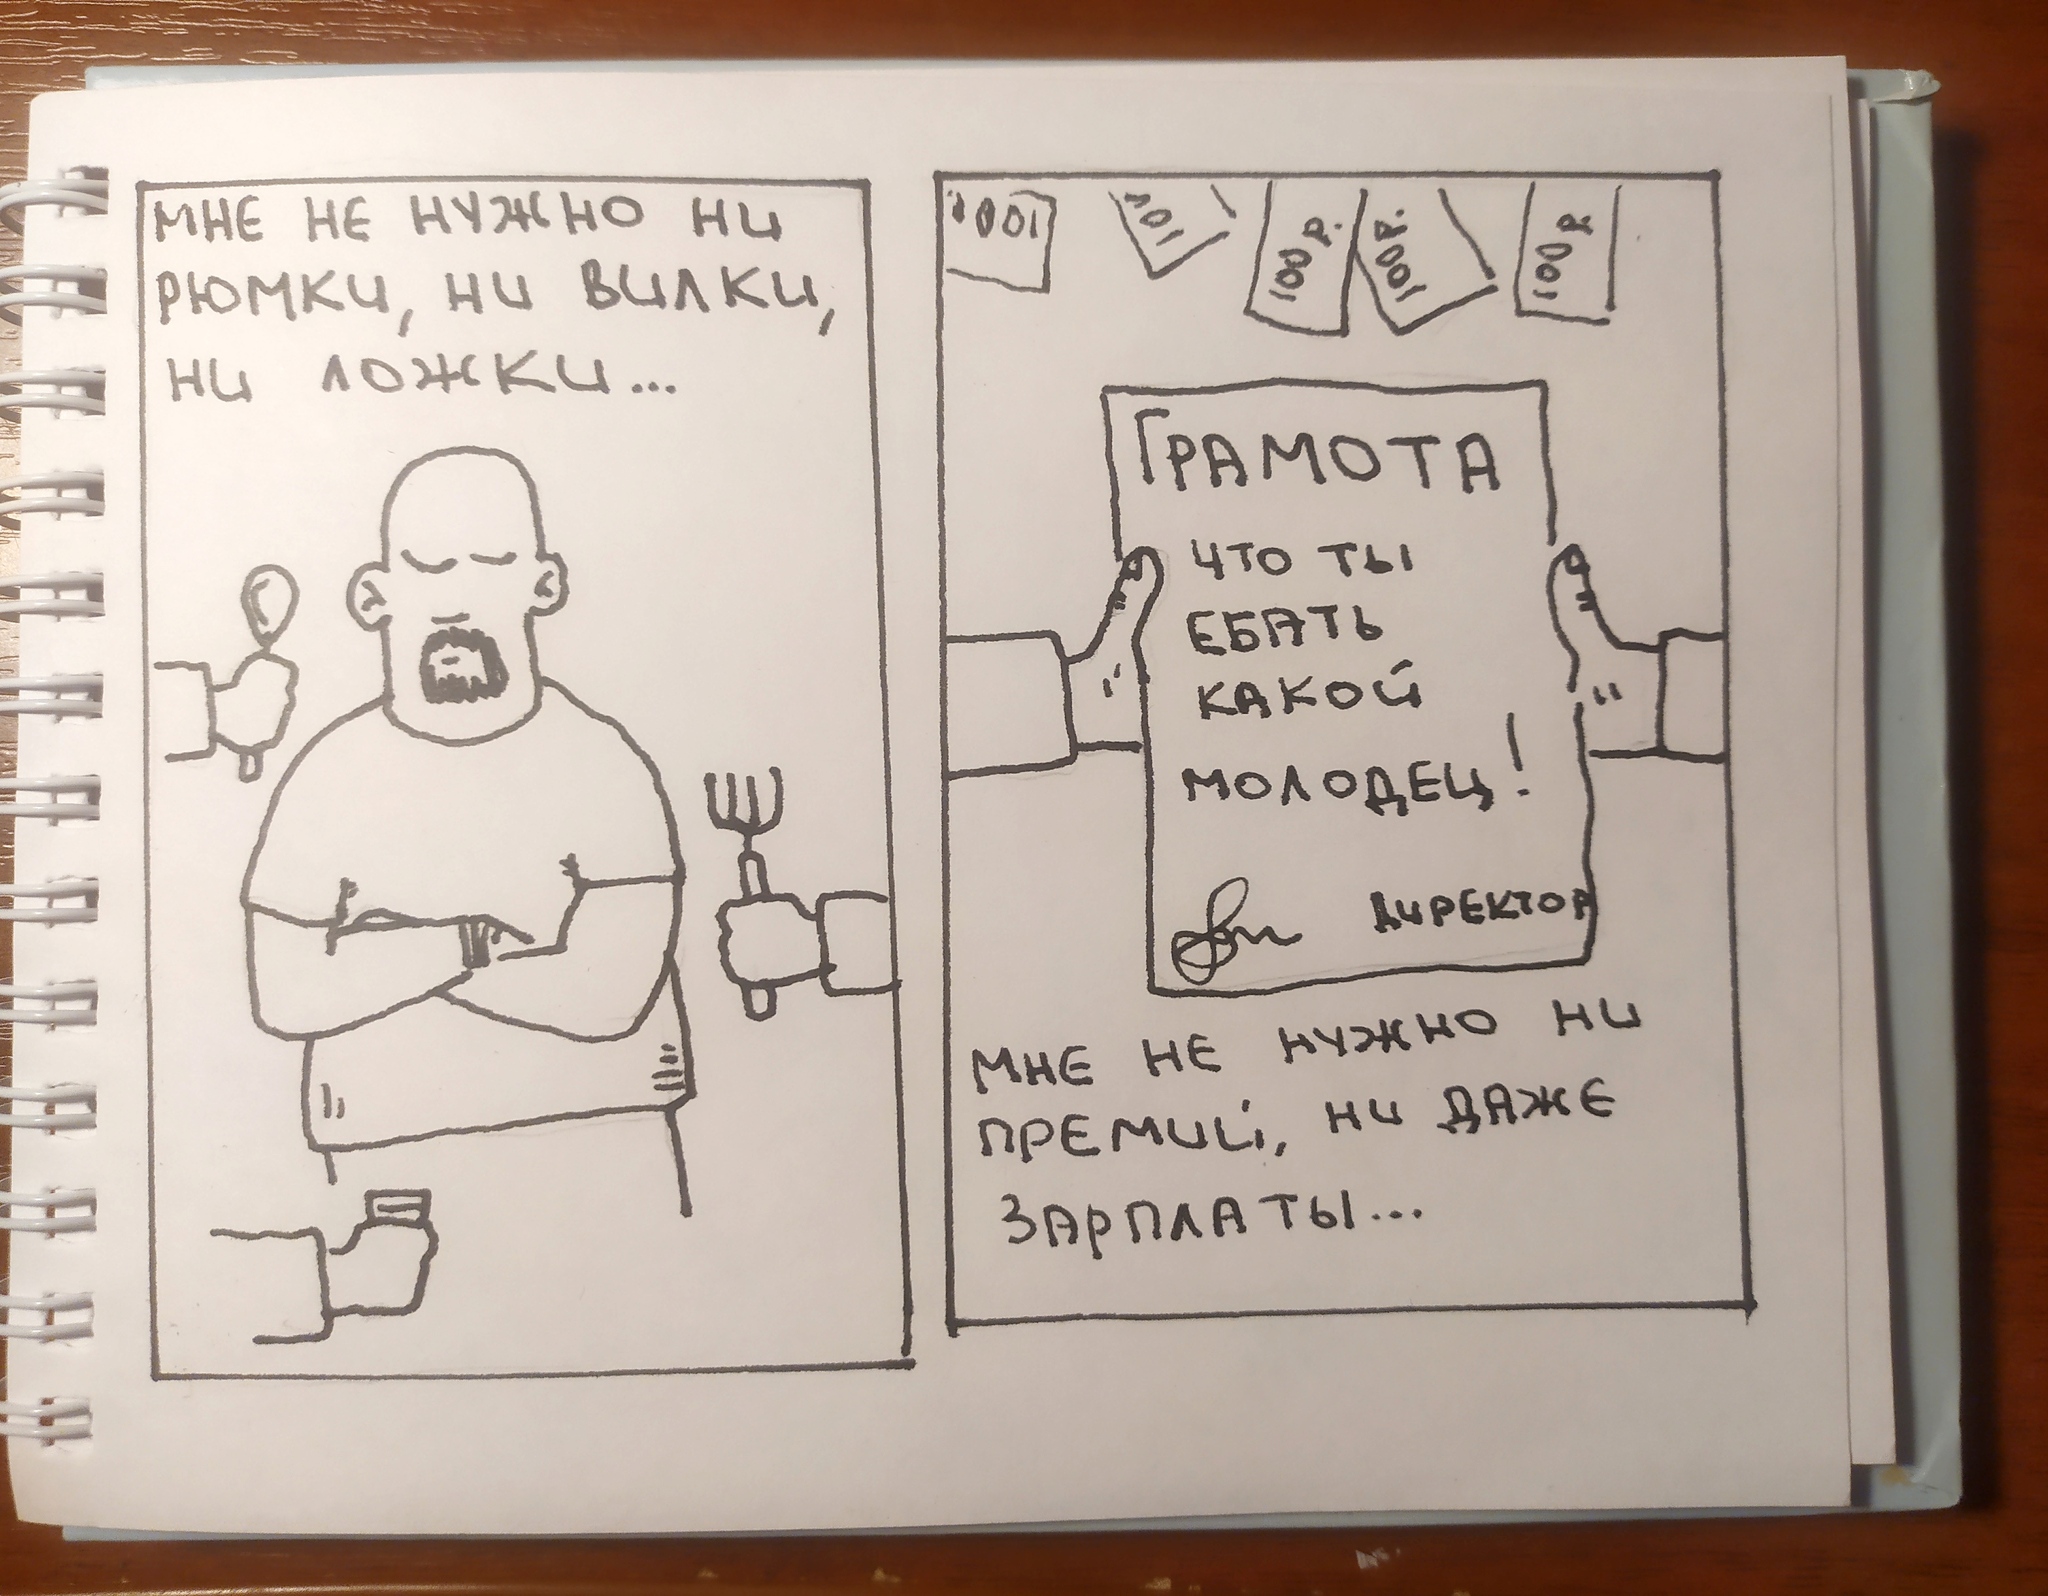 МНЕ НЕ НУЖНО НИ
РЮМКИ, НИ ВИЛКИ,
НИ ЛОЖКИ...
100р.
100р.
100р.
100р.
100р
ГРАМОТА
ЧТО ТЫ
ЕБАТЬ
КАКОЙ
МОЛОДЕЦ!
ДИРЕКТОР
МНЕ НЕ НУЖНО НИ
ПРЕМИЙ, НИ ДАЖЕ
ЗАРПЛАТЫ...